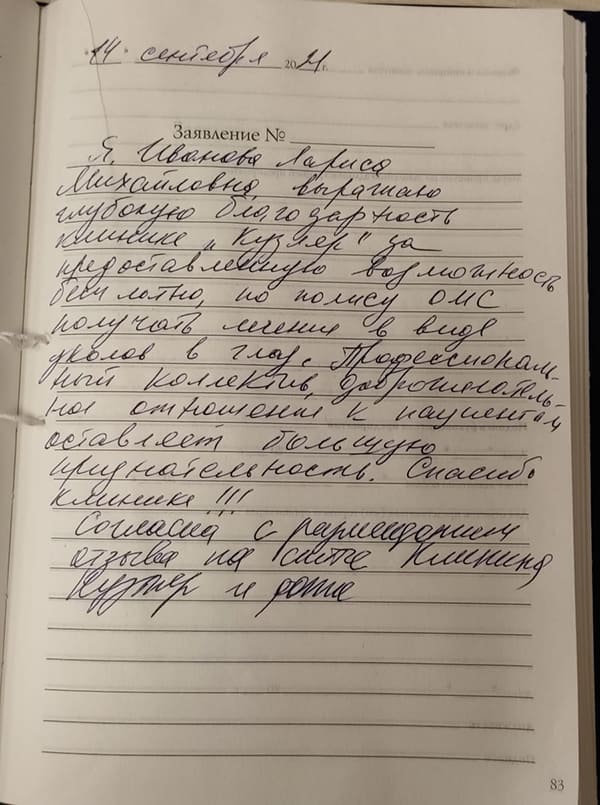 "14" сентября 2021 г.
Заявление №
Я, Иванова Лариса
Михайловна, выражаю
глубокую благодарность
клинике „Кузляр" за
предоставленную возможность
бесплатно, по полису ОМС
получать лечение в виде
уколов в глаз. Профессионал-
ный коллектив, доброжелатель-
ное отношение к пациентам
оставляет большую
признательность. Спасибо
клинике!!!
Согласна с размещением
отзыва на сайте Клиника
и фото
83